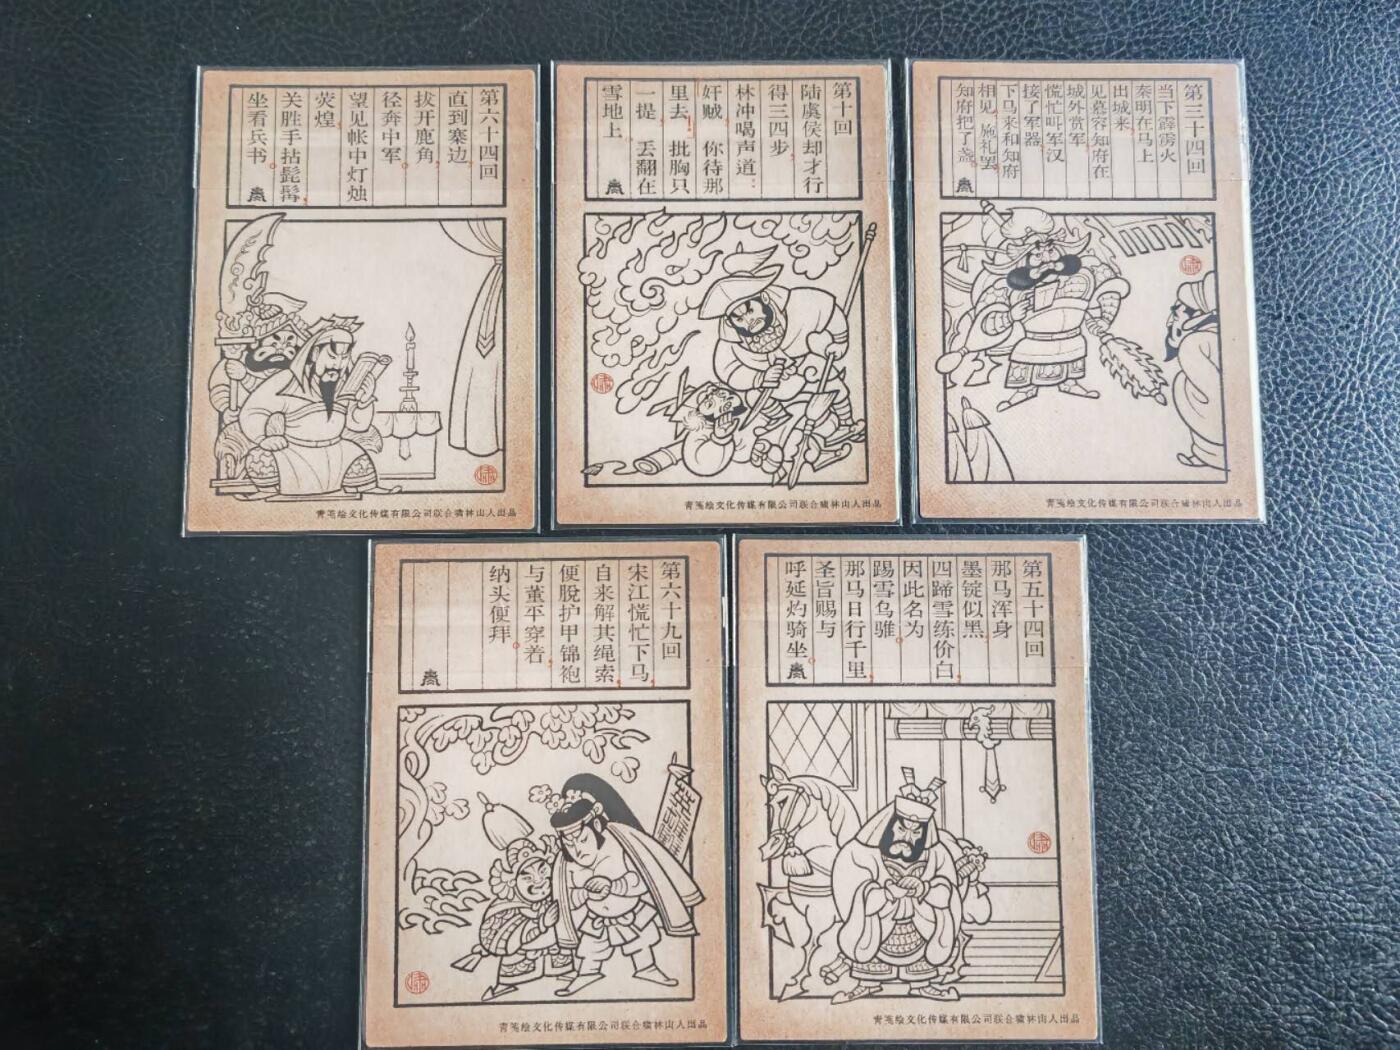 第六十四回
直到寨边
拔开鹿角
径奔中军
望见帐中灯烛
荧煌
关胜手拈髭髯
坐看兵书
青笺绘文化传媒有限公司联合啸林山人出品
第十回
陆虞侯却才行
得三四步
林冲喝声道：
奸贼 你待那
里去！批胸只
一提 丢翻在
雪地上
青笺绘文化传媒有限公司联合啸林山人出品
第三十四回
当下霹雳火
秦明在马上
出城来
见慕容知府在
城外赏军
慌忙叫军汉
接了军器
下马来和知府
相见 施礼罢
知府把了盏
青笺绘文化传媒有限公司联合啸林山人出品
第六十九回
宋江慌忙下马
自来解其绳索
便脱护甲锦袍
与董平穿着
纳头便拜
青笺绘文化传媒有限公司联合啸林山人出品
第五十四回
那马浑身
墨锭似黑
四蹄雪练价白
因此名为
踢雪乌骓
那马日行千里
圣旨赐与
呼延灼骑坐
青笺绘文化传媒有限公司联合啸林山人出品